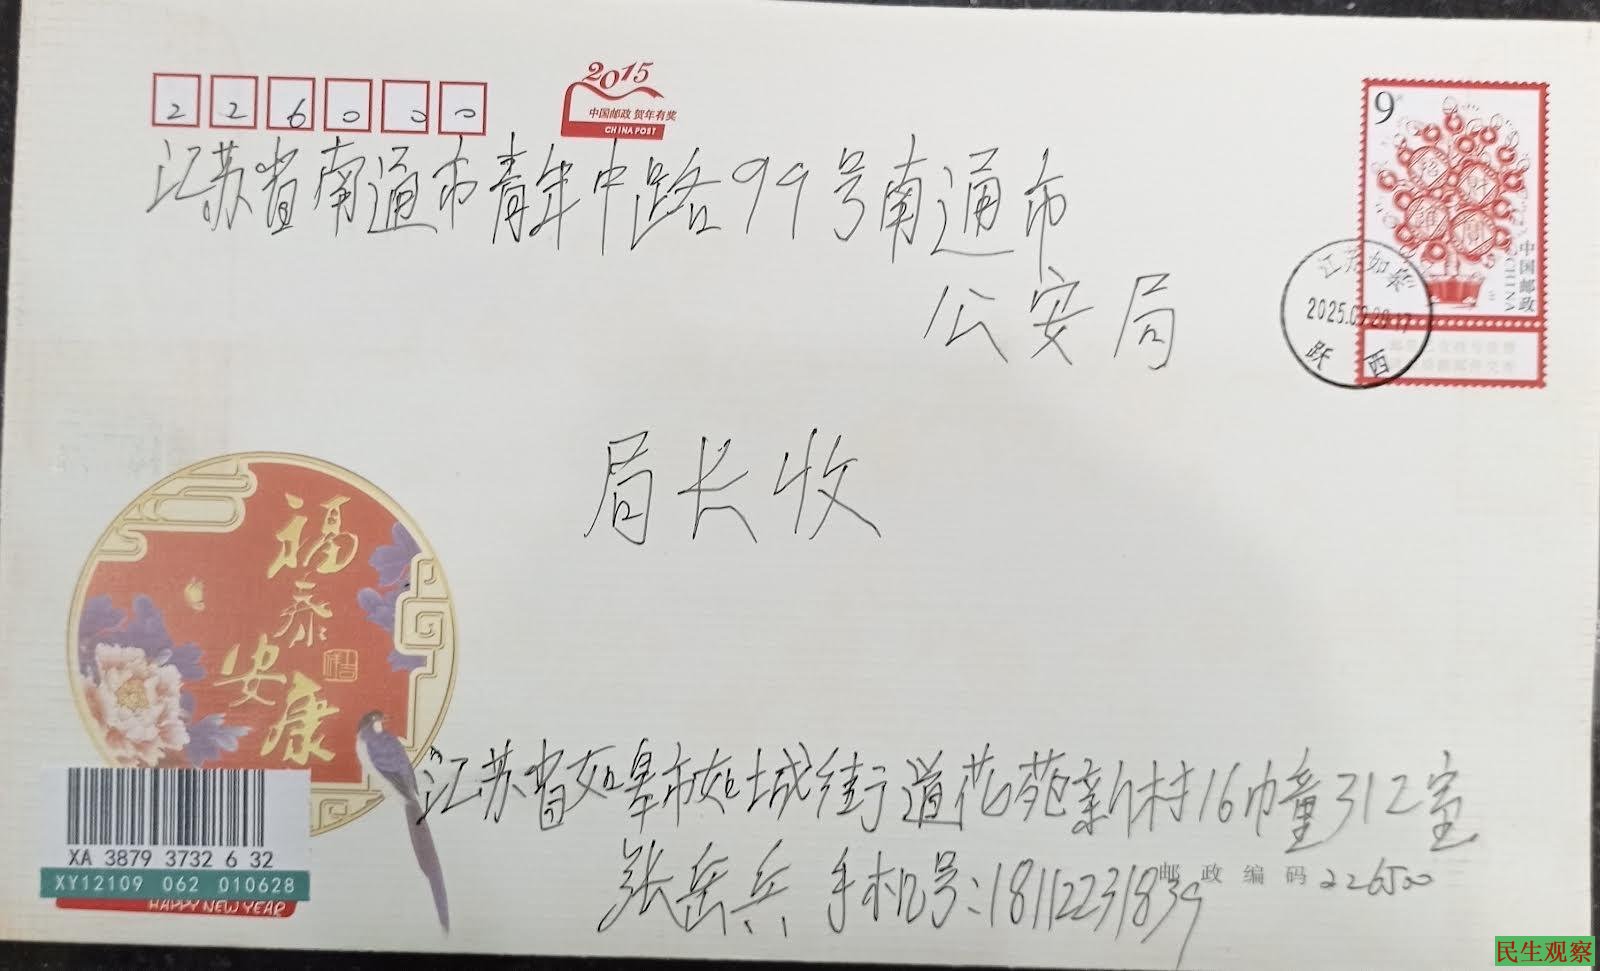 2015
中国邮政 贺年有奖
CHINA POST
226000
9
中国邮政
CHINA
江苏省南通市青年中路99号南通市
公安局
江苏如皋
2025.09.29.17
跃西
局长收
福
泰
安
康
江苏省如皋市如城街道花苑新村16幢312室
张岳兵 手机号:18112231839
邮政编码 226500
XA 3879 3732 6 32
XY12109 062 010628
HAPPY NEW YEAR
民生观察